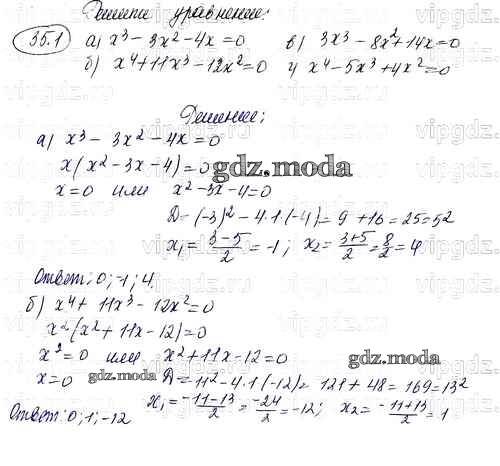 Решити уравнение:
35.1 а) x³ - 3x² - 4x = 0 в) 3x³ - 8x² + 14x = 0
б) x⁴ + 11x³ - 12x² = 0 г) x⁴ - 5x³ + 4x² = 0
Решение:
а) x³ - 3x² - 4x = 0
x(x² - 3x - 4) = 0
x = 0 или x² - 3x - 4 = 0
D = (-3)² - 4·1·(-4) = 9 + 16 = 25 = 5²
x₁ = (3-5)/2 = -1; x₂ = (3+5)/2 = 8/2 = 4.
Ответ: 0; -1; 4.
б) x⁴ + 11x³ - 12x² = 0
x²(x² + 11x - 12) = 0
x² = 0 или x² + 11x - 12 = 0
x = 0 D = 11² - 4·1·(-12) = 121 + 48 = 169 = 13²
x₁ = (-11-13)/2 = -24/2 = -12; x₂ = (-11+13)/2 = 1
Ответ: 0; 1; -12
gdz.moda
gdz.moda
gdz.moda
vipgdz.ru